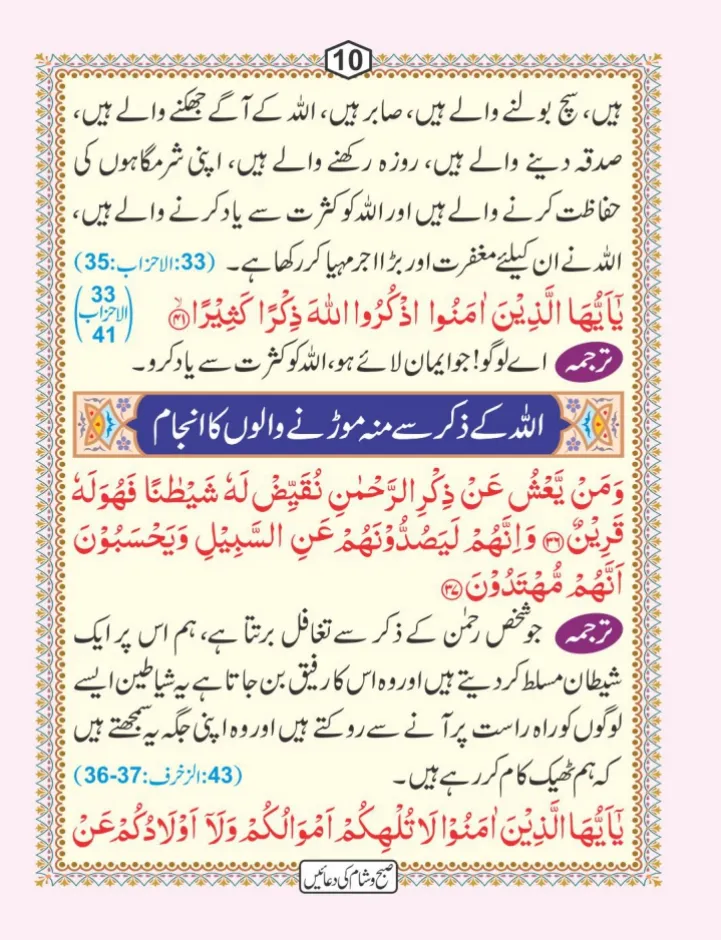 10
ہیں، سچ بولنے والے ہیں، صابر ہیں، اللہ کے آگے جھکنے والے ہیں،
صدقہ دینے والے ہیں، روزہ رکھنے والے ہیں، اپنی شرمگاہوں کی
حفاظت کرنے والے ہیں اور اللہ کو کثرت سے یاد کرنے والے ہیں،
اللہ نے ان کیلئے مغفرت اور بڑا اجر مہیا کر رکھا ہے۔ (33:الاحزاب:35)
يٰۤاَيُّهَا الَّذِيْنَ اٰمَنُوا اذْكُرُوا اللّٰهَ ذِكْرًا كَثِيْرًا ۙ﴿۴۱﴾ (33 الاحزاب 41)
ترجمہ اے لوگو! جو ایمان لائے ہو، اللہ کو کثرت سے یاد کرو۔
اللہ کے ذکر سے منہ موڑنے والوں کا انجام
وَمَنْ يَّعْشُ عَنْ ذِكْرِ الرَّحْمٰنِ نُقَيِّضْ لَهٗ شَيْطٰنًا فَهُوَ لَهٗ
قَرِيْنٌ ﴿۳۶﴾ وَاِنَّهُمْ لَيَصُدُّوْنَهُمْ عَنِ السَّبِيْلِ وَيَحْسَبُوْنَ
اَنَّهُمْ مُّهْتَدُوْنَ ﴿۳۷﴾
ترجمہ جو شخص رحمٰن کے ذکر سے تغافل برتتا ہے، ہم اس پر ایک
شیطان مسلط کر دیتے ہیں اور وہ اس کا رفیق بن جاتا ہے یہ شیاطین ایسے
لوگوں کو راہ راست پر آنے سے روکتے ہیں اور وہ اپنی جگہ یہ سمجھتے ہیں
کہ ہم ٹھیک کام کر رہے ہیں۔ (43:الزخرف:37-36)
يٰۤاَيُّهَا الَّذِيْنَ اٰمَنُوْا لَا تُلْهِكُمْ اَمْوَالُكُمْ وَلَاۤ اَوْلَادُكُمْ عَنْ
صبح و شام کی دعائیں